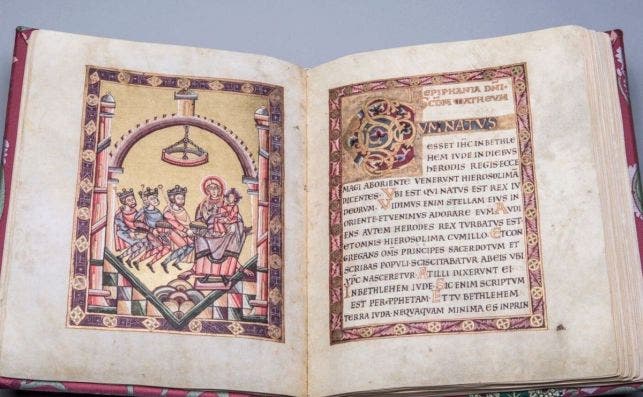 EPIPHANIA DNI
SCDM MATHEUM
CUM NATUS
ESSET IHC IN BETHLE
HEM IUDE IN DIEBUS
HERODIS REGIS · ECCE
MAGI AB ORIENTE VENERUNT HIEROSOLIMA
DICENTES · UBI EST QUI NATUS EST REX IU
DEORUM · VIDIMUS ENIM STELLAM EIUS IN
ORIENTE · ET VENIMUS ADORARE EUM · AUDI
ENS AUTEM HERODES REX TURBATUS EST
ET OMNIS HIEROSOLIMA CUM ILLO · ET CON
GREGANS OMS PRINCIPES SACERDOTUM ET
SCRIBAS POPULI · SCISCITABATUR AB EIS UBI
XPC NASCERETUR · AT ILLI DIXERUNT EI
IN BETHLEHEM IUDE · SIC ENIM SCRIPTUM
EST PER PPHETAM · ET TU BETHLEHEM
TERRA IUDA · NEQUAQUAM MINIMA ES IN PRIN